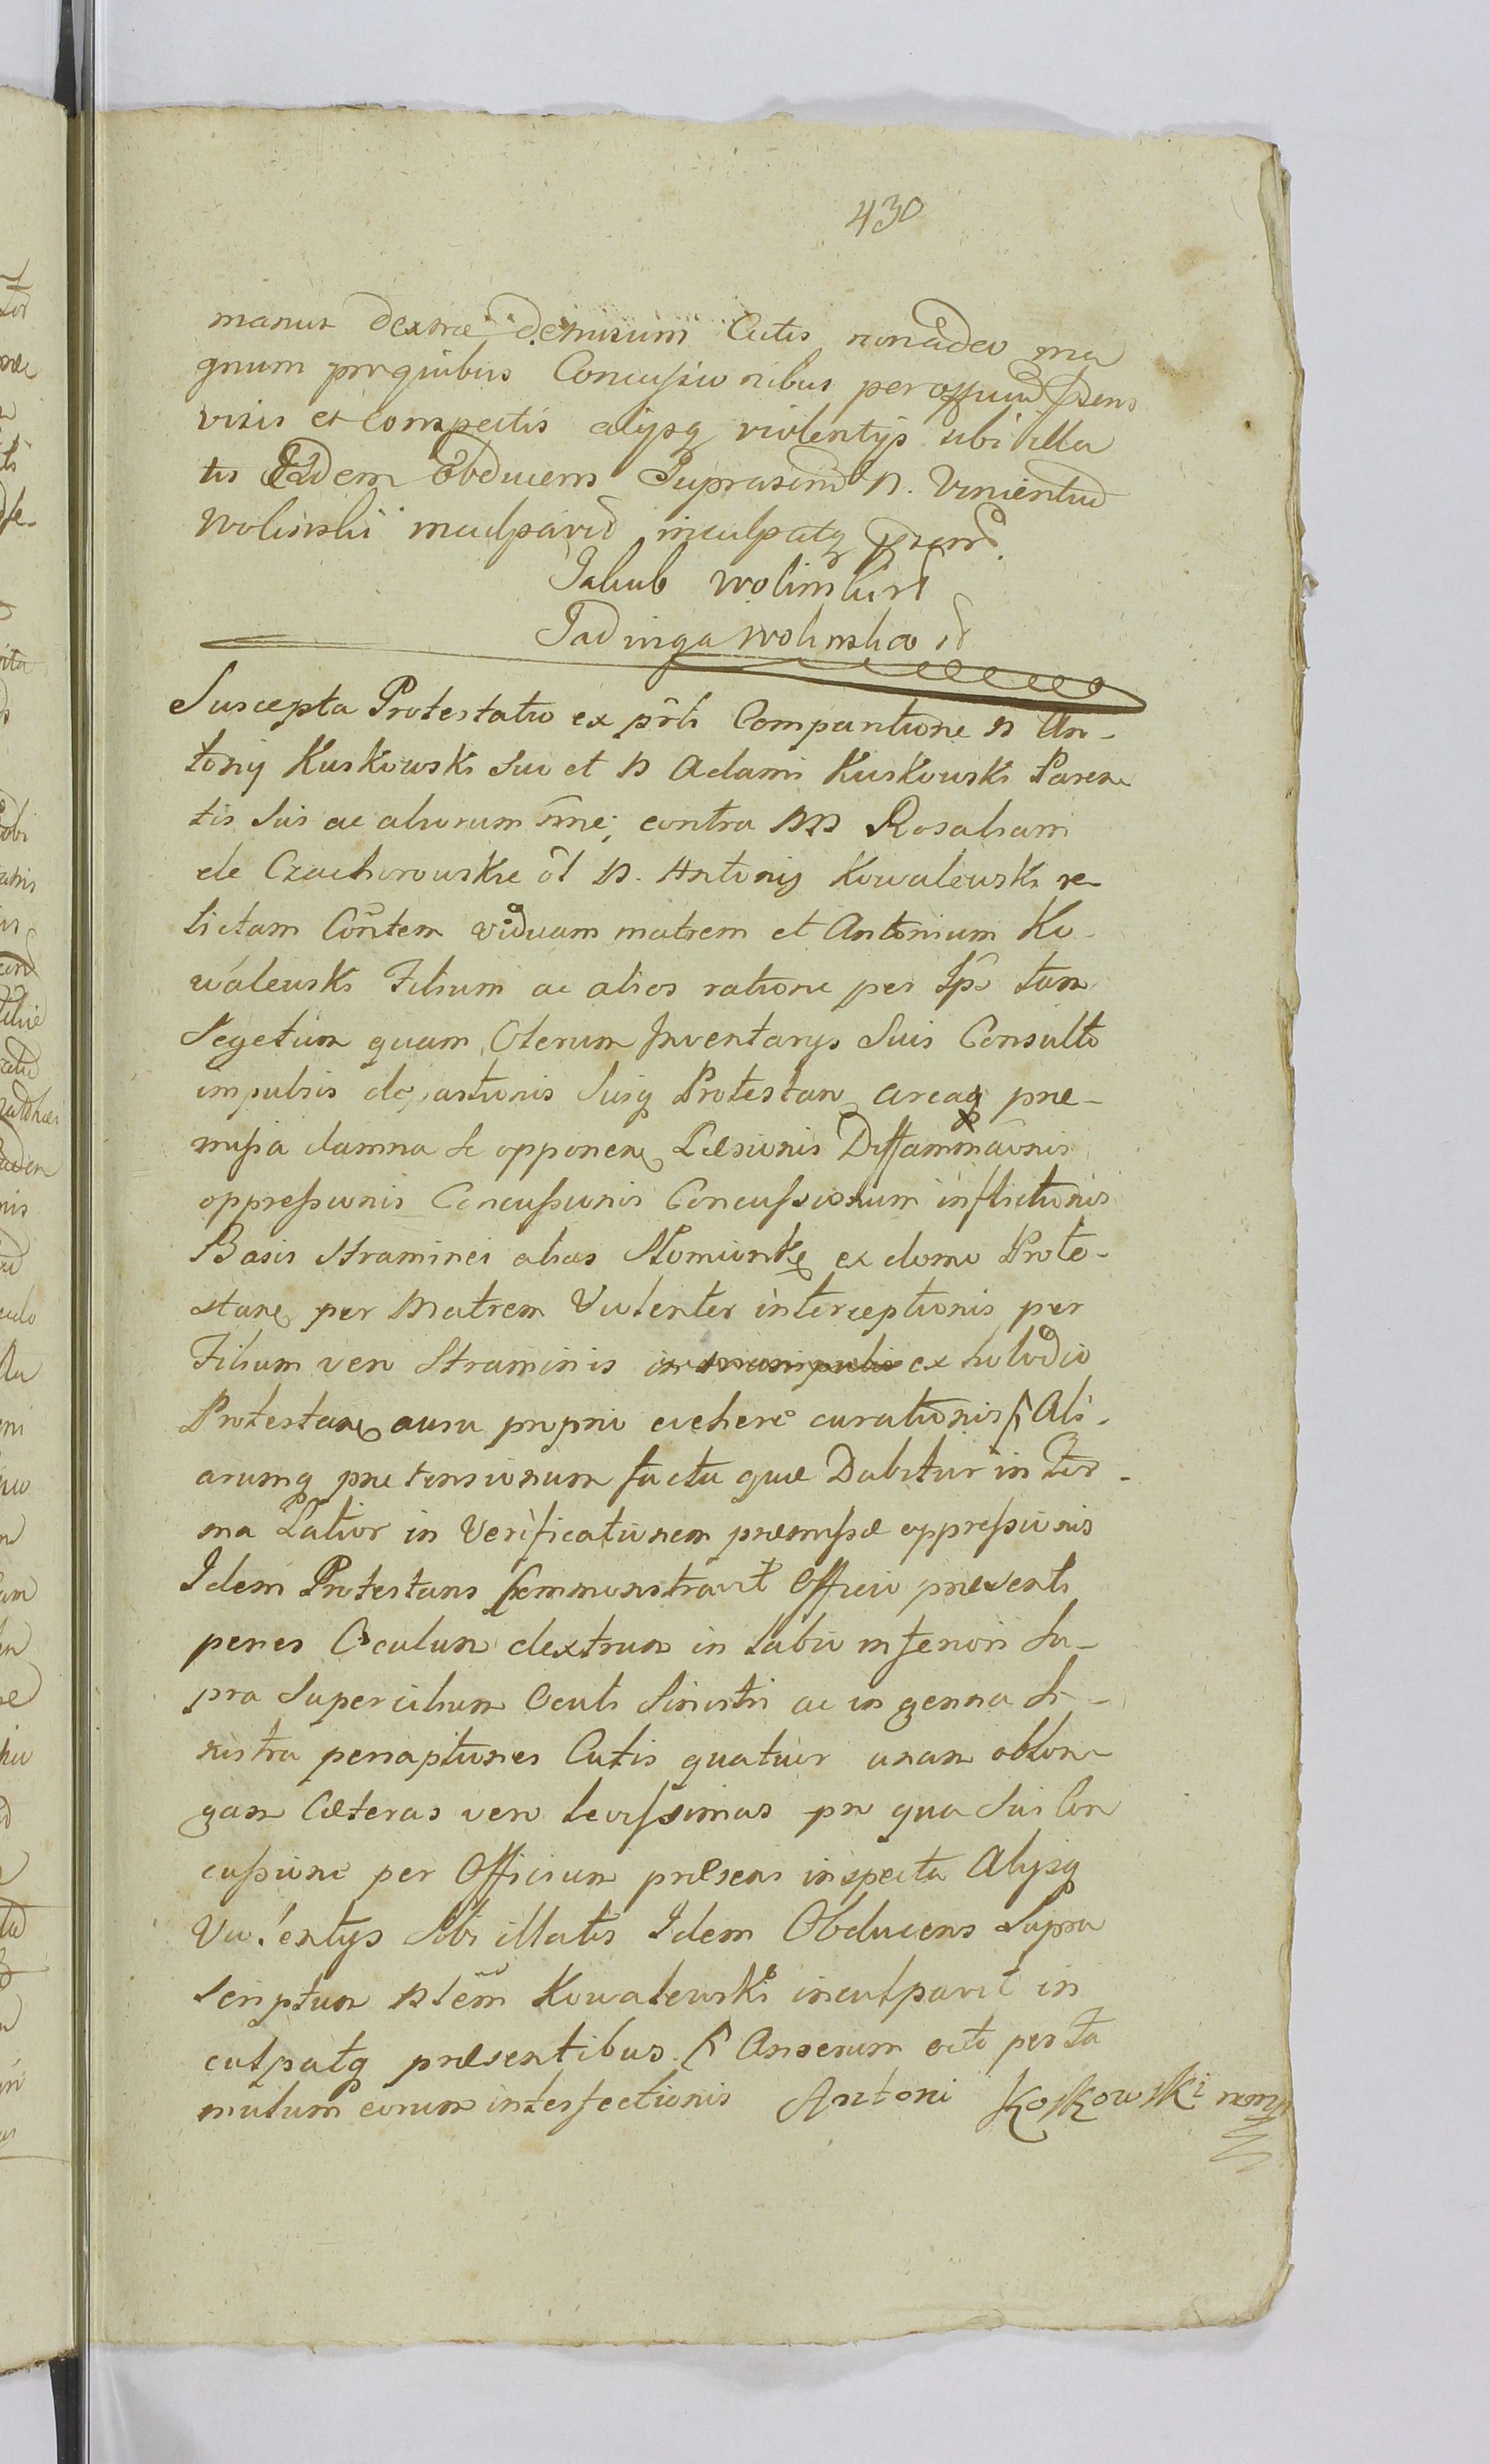 430
manus dextræ demisum Cutis non adeo ma
gnum pro quibus Concussionibus per officium psens
visis et conspectis alijsq violentijs sibi illa
tis Eidem Obducens Suprascrip N. Vincentiu
Wolinski inculpavid inculpatq
Jakub wolinski
Jadwiga wolinska
Suscepta Protestatio ex prti Comparitione N An-
tonij Kuskowski Suo et N Adami Kuskowski Paren
tis Sui ac aliorum nne, contra NN Rosaliam
de Czachorowskie ol N. Antonij Kowalewski re
lictam Contem viduam matrem et Antonium Ko-
walewski Filium ac alios ratione per Ips tam
Segetum quam Oterum Inventarys Suis Consulto
impulsis depastionis Suisq Protestan circaq præ-
missa damna se opponen Læsionis Diffammaonis
oppressionis Concussionis Concussionum inflictionis
Basis Straminei alias Słomionkę ex domo Prote-
stan per Matrem Violenter interceptionis per
Filium vero Straminis in manipulis ex holodio
Protestan ausu proprio evehere curationis Ali-
arumq prætensionum facta quæ Dabitur in For-
ma Latior in Verificationem præmissæ oppressionis
Idem Protestans Commonstravit Officio præsenti
penes Oculum dextrum in labio inferiori Su-
pra Supercilium Oculi Sinistri ac in genna Si-
nistra perraptiones Cutis quatuor unam oblon-
gam Cæteras vero levissimas pro qua Sui Con
cussione per Officium præsens inspecta Alijsq
Violentijs Sibi illatis Idem Obducens Supra
Scriptum Kowalewski inculpavit in
culpatq præsentibus. Anserum octo per Fa
mulum eorum interfectionis Antoni Koskowski mmp